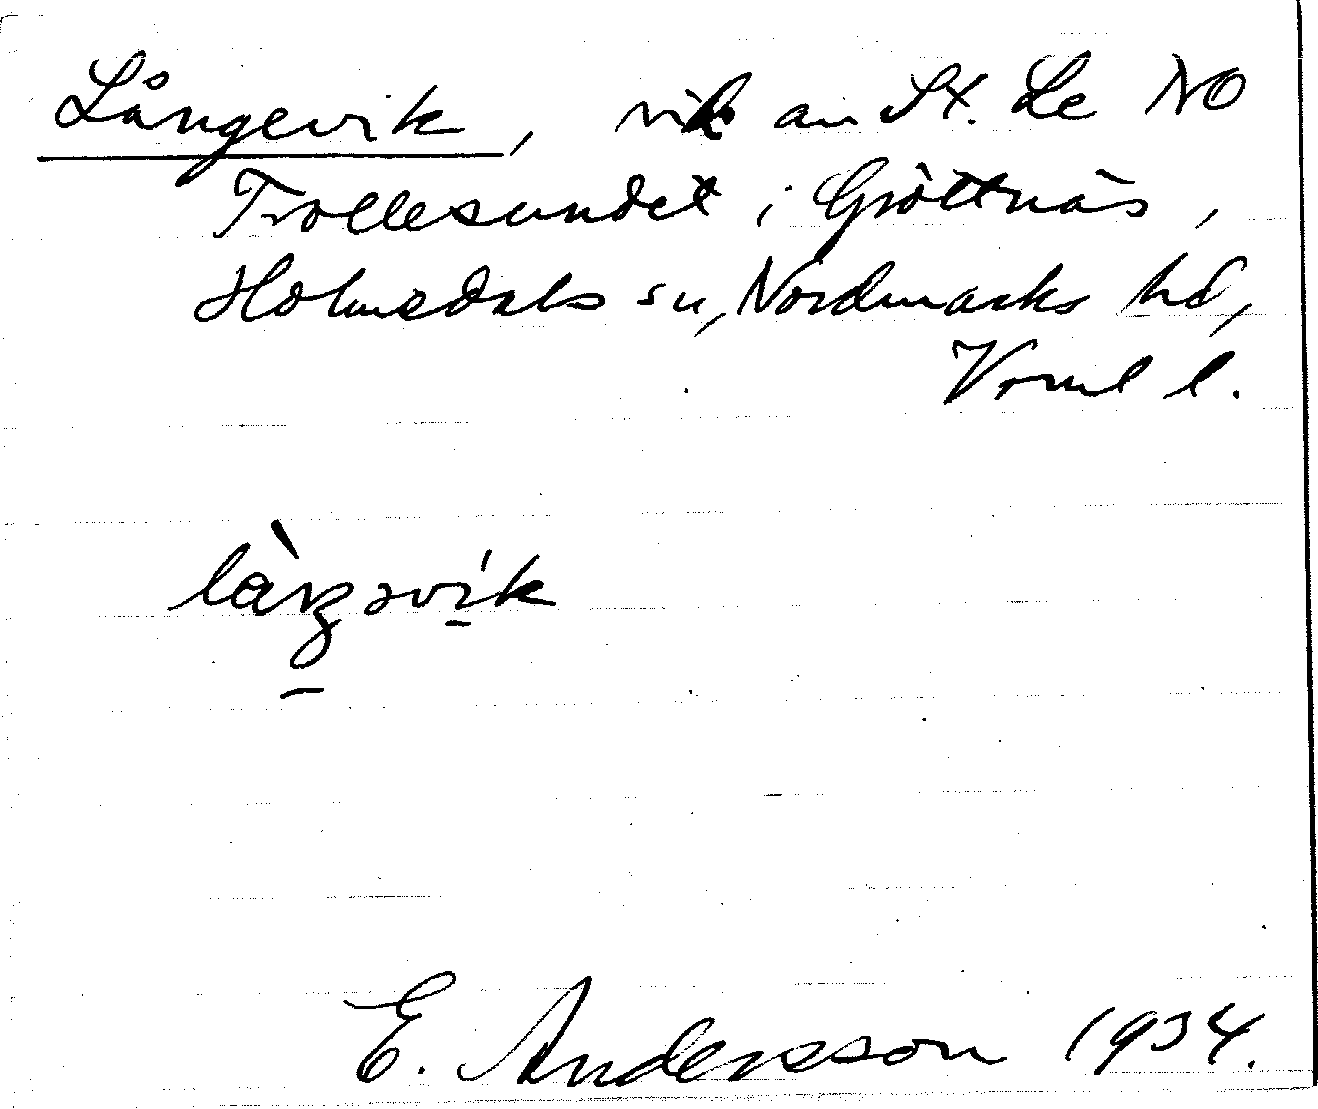 Långevik, vik av St. Le NO
Trollesundet i Gröttnäs,
Holmedals sn, Nordmarks hd,
Vrml l.
làŋəvík
E. Andersson 1934.